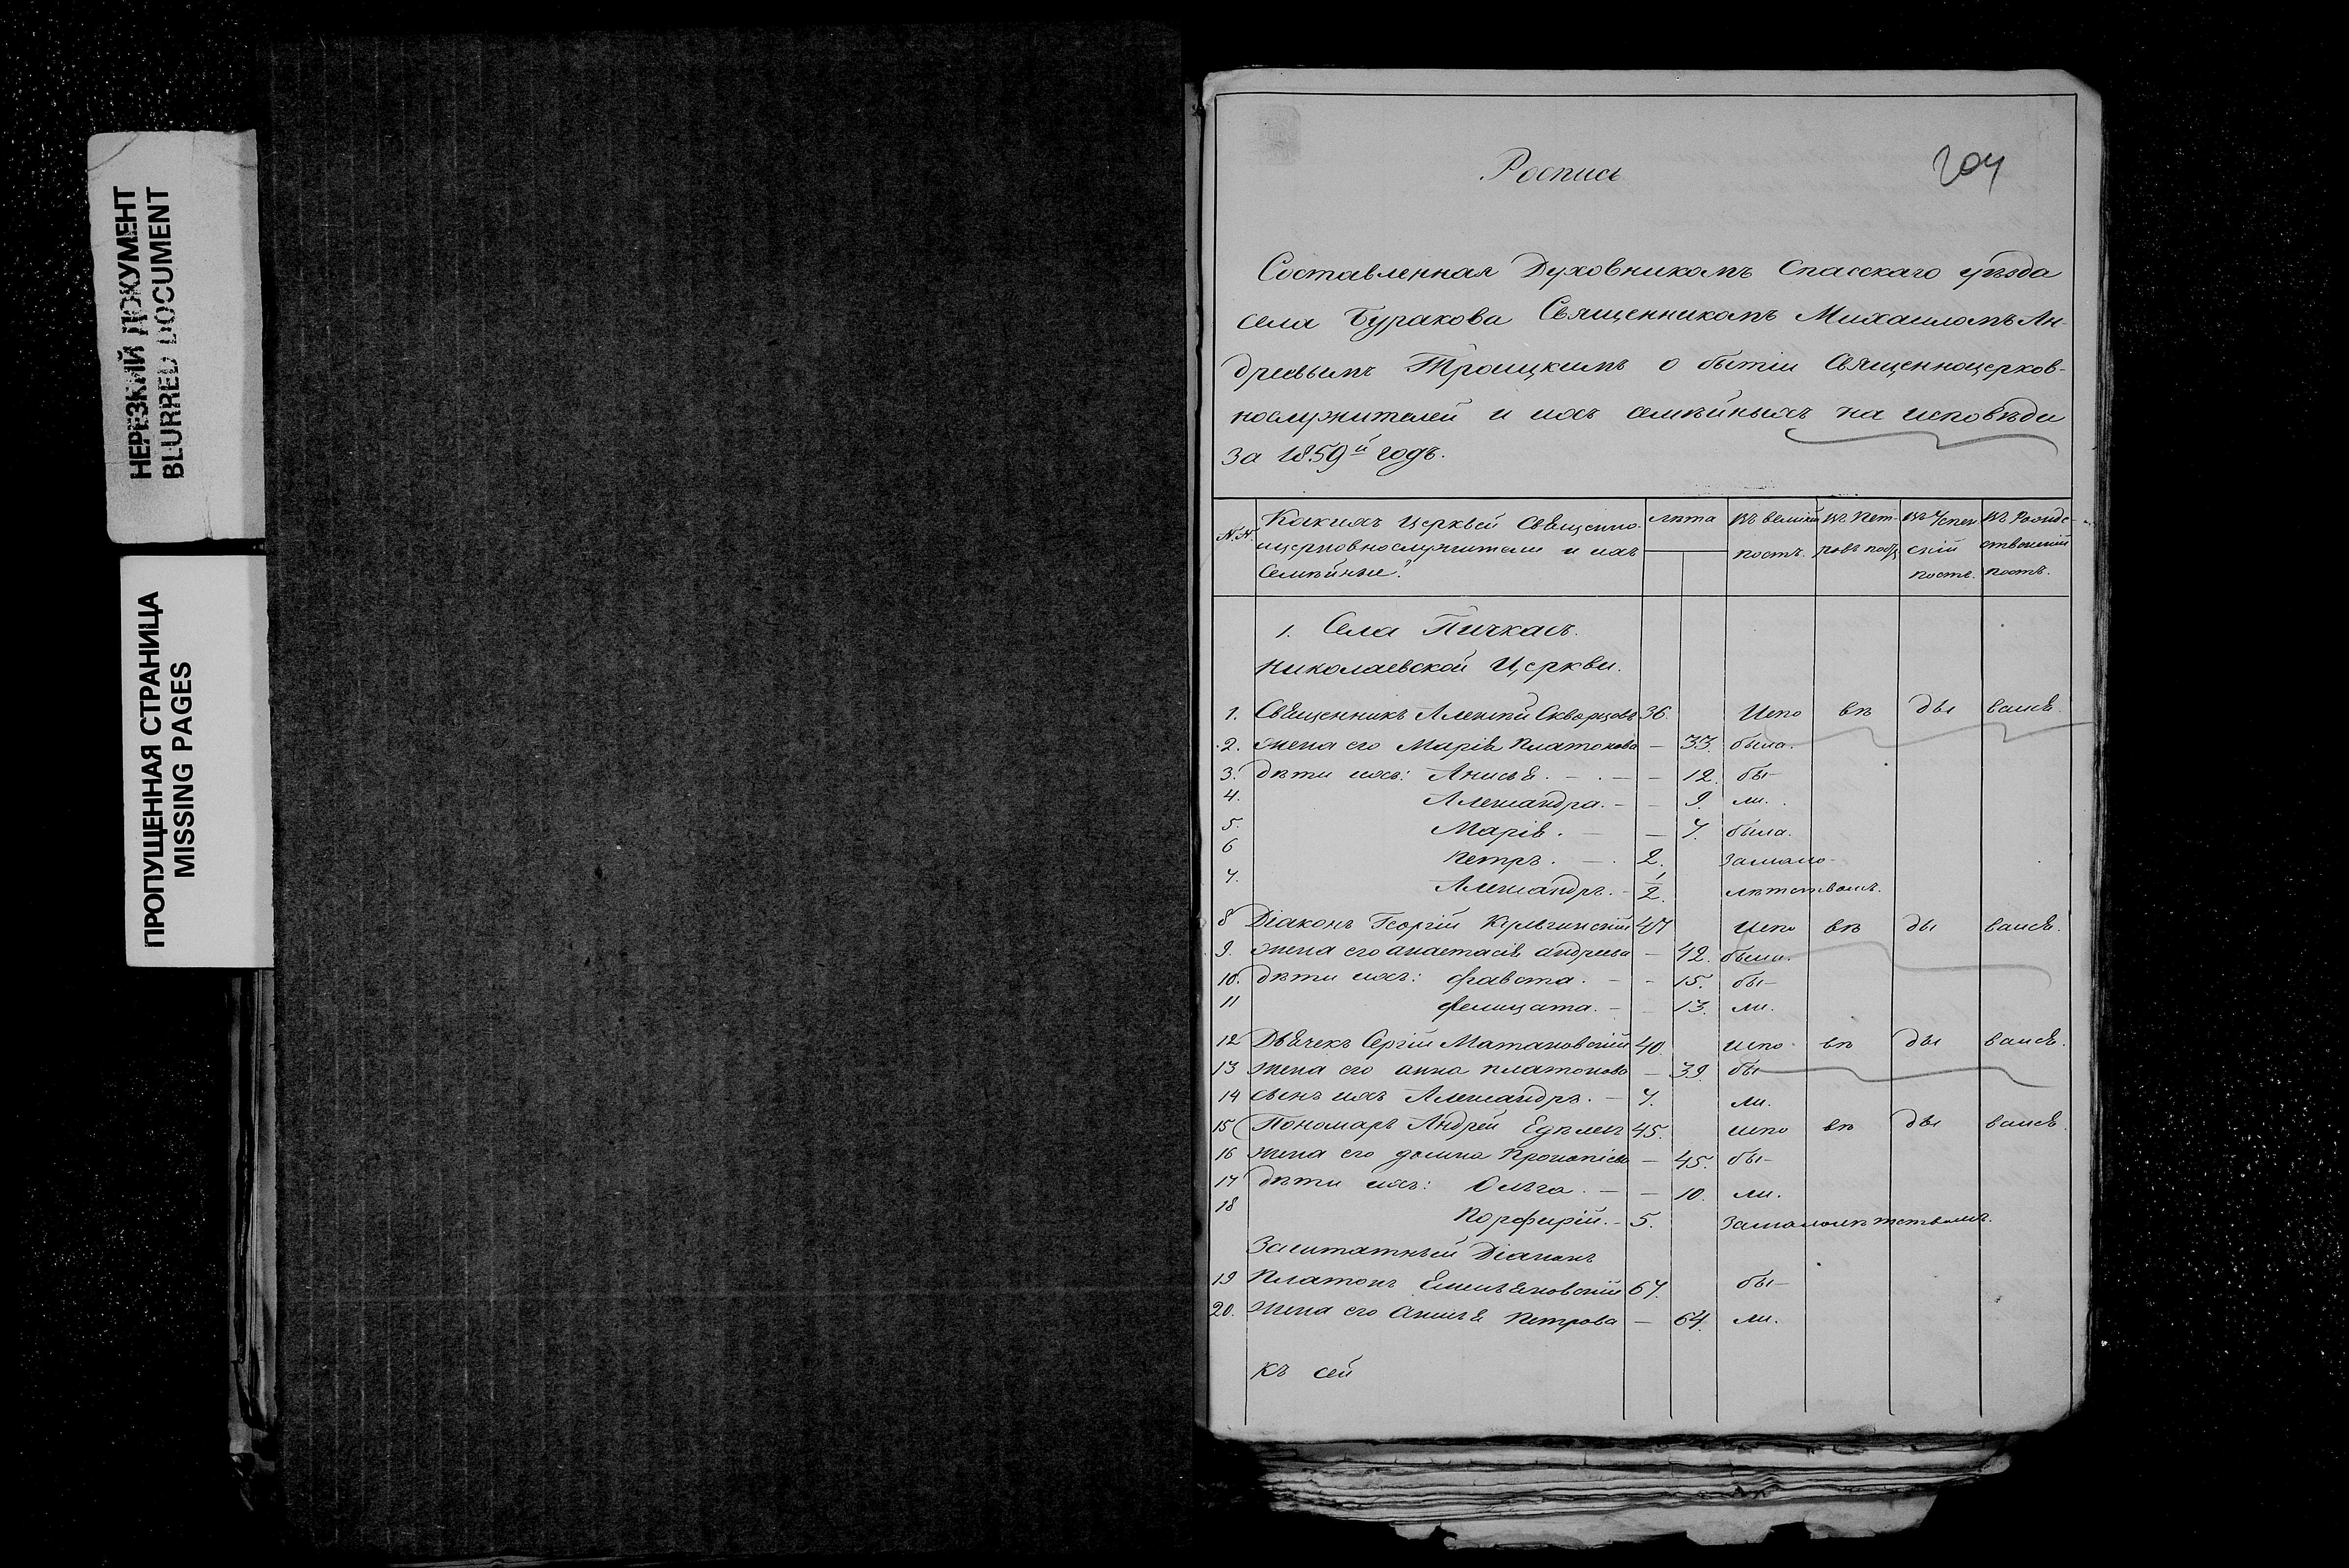 НЕРЕЗКИЙ ДОКУМЕНТ
BLURRED DOCUMENT
ПРОПУЩЕННАЯ СТРАНИЦА
MISSING PAGES
204
Роспись
Составленная Духовникомъ Спасскаго уѣзда
села Буракова Священникомъ Михаиломъ Ан-
дреевымъ Троицкимъ о бытіи Священноцерков-
нослужителей и ихъ семѣйныхъ на исповѣди
за 1859й годъ.
№.№. Какихъ Церквей Священно- лѣта въ великій въ Пет- въ Успен въ Рожде-
церковнослужители и ихъ постъ. ровъ постъ скій ственскій
Семѣйные? постъ. постъ.
1. Села Пичкасъ.
Николаевской Церкви.
1. Священникъ Алексѣй Скворцовъ 36. Испо вѣ ды вался.
2. жена его Марія Платонова — 33. была.
3. дѣти ихъ: Анисья. — — 12. бы-
4. Александра. — — 9. ли.
5. Марія. — — 7. была.
6 Петръ. — 2. За мало-
7. Александръ. — 1/2. лѣтствомъ.
8 Діаконъ Георгій 47 Испо вѣ ды вался.
9. жена его Анастасія Андреева — 42. была.
10. дѣти ихъ: — — 15. бы-
11 Фелицата. — — 13. ли.
12 Дьячекъ Сергій 40. Испо вѣ ды вался.
13 жена его Анна Платонова — 39. бы-
14 сынъ ихъ Александръ. — 7. ли.
15 Пономарь Андрей 45. Испо вѣ ды вался.
16 жена его — 45. бы-
17 дѣти ихъ: Ольга. — — 10. ли.
18 Порфирій. — 5. За малолѣтствомъ.
Заштатный Діаконъ
19 Платонъ Емельяновскій 67. бы-
20. жена его Анисья Петрова — 64. ли.
Къ сей